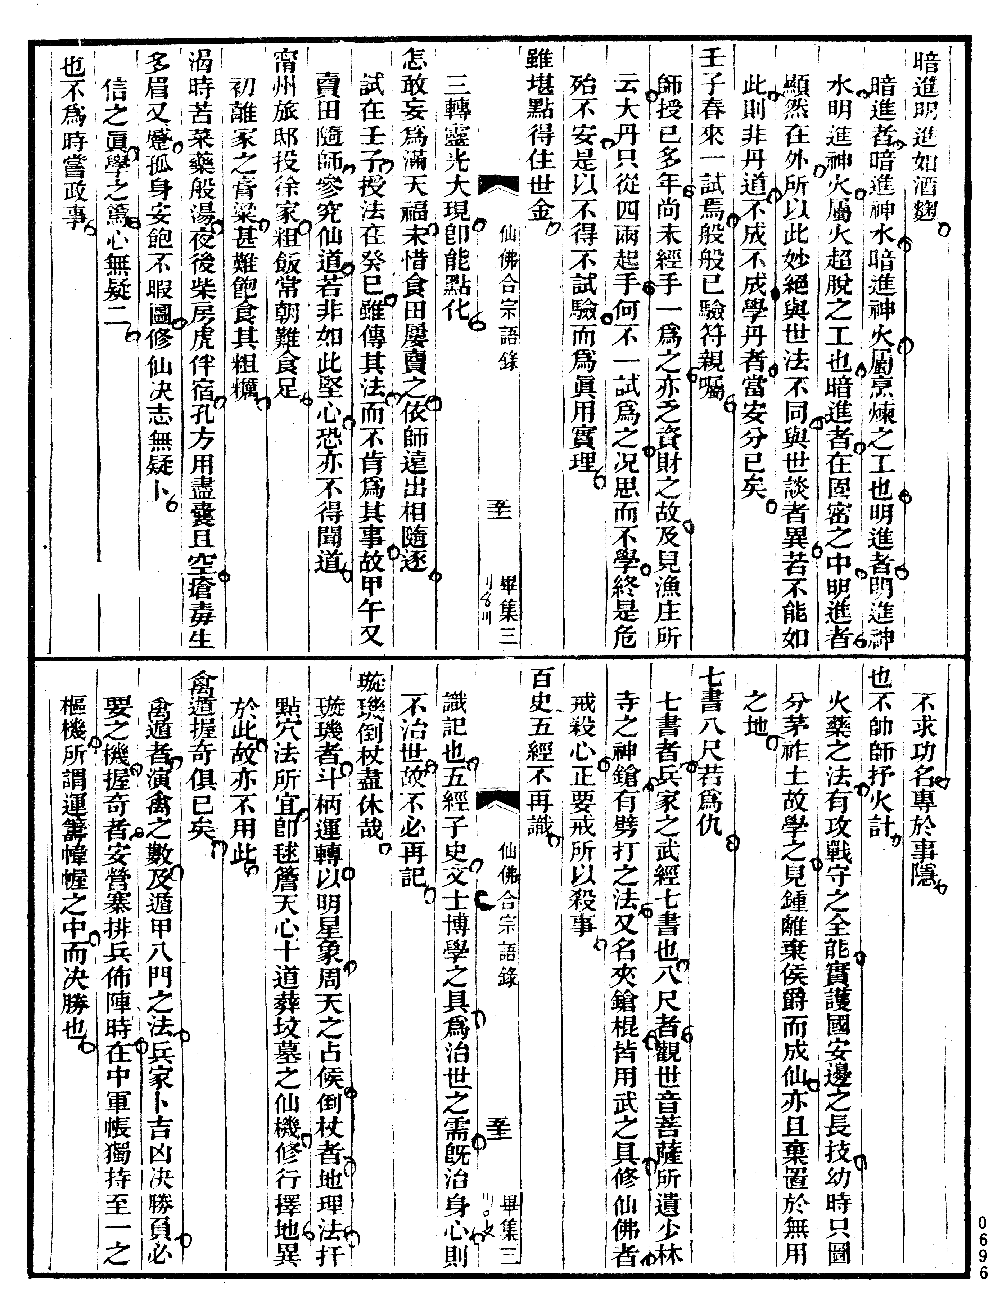 暗進明進如酒麹
暗進者暗進神水暗進神火屬烹煉之工也明進者明進神
水明進神火屬火超脫之工也暗進者在固密之中明進者
顯然在外所以此妙絕與世法不同與世談者異若不能如
此則非丹道不成不成學丹者當安分已矣
壬子春來一試焉般般已驗符親囑
師授已多年尚未經手一爲之亦乏資財之故及見漁庄所
云大丹只從四兩起手何不一試爲之况思而不學終是危
殆不安是以不得不試驗而爲眞用實理
雖堪點得住世金
仙佛合宗語錄
畢集三
三轉靈光大現卽能點化
怎敢妄爲滿天福未惜食田屢賣之依師遠出相隨逐
試在壬子授法在癸巳雖傳其法而不肯爲其事故甲午又
賣田隨師參究仙道若非如此堅心恐亦不得聞道
甯州旅邸投徐家粗飯常朝難食足
初離家之膏粱甚難飽食其粗糲
渴時苦菜藥般湯夜後柴房虎伴宿孔方用盡囊且空瘡毒生
多眉又蹙孤身安飽不暇圖修仙決志無疑卜
信之眞學之篤心無疑二
也不爲時嘗政事
不求功名專於事隱
也不帥師抒火計
火藥之法有攻戰守之全能實護國安邊之長技幼時只圖
分茅祚土故學之見鍾離棄侯爵而成仙亦且棄置於無用
之地
七書八尺若爲仇
七書者兵家之武經七書也八尺者觀世音菩薩所遺少林
寺之神鎗有劈打之法又名夾鎗棍皆用武之具修仙佛者
戒殺心正要戒所以殺事
百史五經不再識
仙佛合宗語錄
畢集三
識記也五經子史文士博學之具爲治世之需旣治身心則
不治世故不必再記
璇璣倒杖盡休哉
璇璣者斗柄運轉以明星象周天之占候倒杖者地理法扞
點穴法所宜卽毬簷天心十道葬墳墓之仙機修行擇地異
於此故亦不用此
禽遁握奇俱已矣
禽遁者演禽之數及遁甲八門之法兵家卜吉凶决勝負必
要之機握奇者安營寨排兵佈陣時在中軍帳獨持至一之
樞機所謂運籌帷幄之中而决勝也
0696